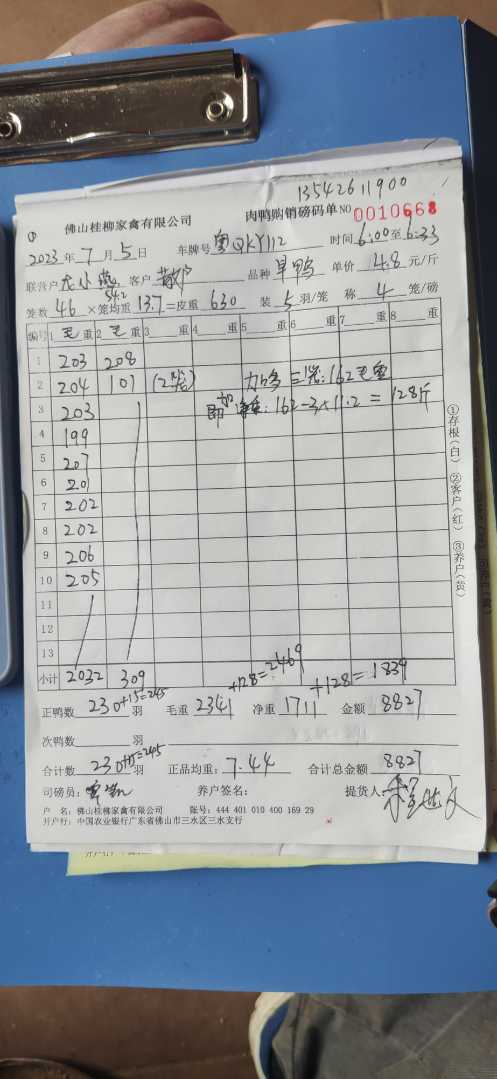 13542611900
佛山桂柳家禽有限公司 肉鸭购销磅码单 NO 0010668
①
2023 年 7 月 5 日 车牌号 粤QKY112 时间 6:00 至 6:33
联营户 龙小燕 客户 散户 品种 旱鸭 单价 4.8 元/斤
54.2
笼数 46 ×笼均重 13.7 =皮重 630 装 5 羽/笼 称 4 笼/磅
编号 1 毛 重 2 毛 重 3 重 4 重 5 重 6 重 7 重 8 重
1 203 208
2 204 101 (2笼) 加多三笼:162毛重
3 203 即加净重:162-3×11.2=128斤
4 199
5 207
6 201
7 202
8 202
9 206
10 205
11
12
13
小计 2032 309
正鸭数 230+15=245 羽 毛重 2341+128=2469 净重 1711+128=1839 金额 8827
次鸭数 羽
合计数 230+15=245 羽 正品均重: 7.44 合计总金额 8827
司磅员: 养户签名: 提货人:
户 名: 佛山桂柳家禽有限公司 账号: 444 401 010 400 169 29
开户行: 中国农业银行广东省佛山市三水区三水支行
①存根(白) ②客户(红) ③养户(黄)